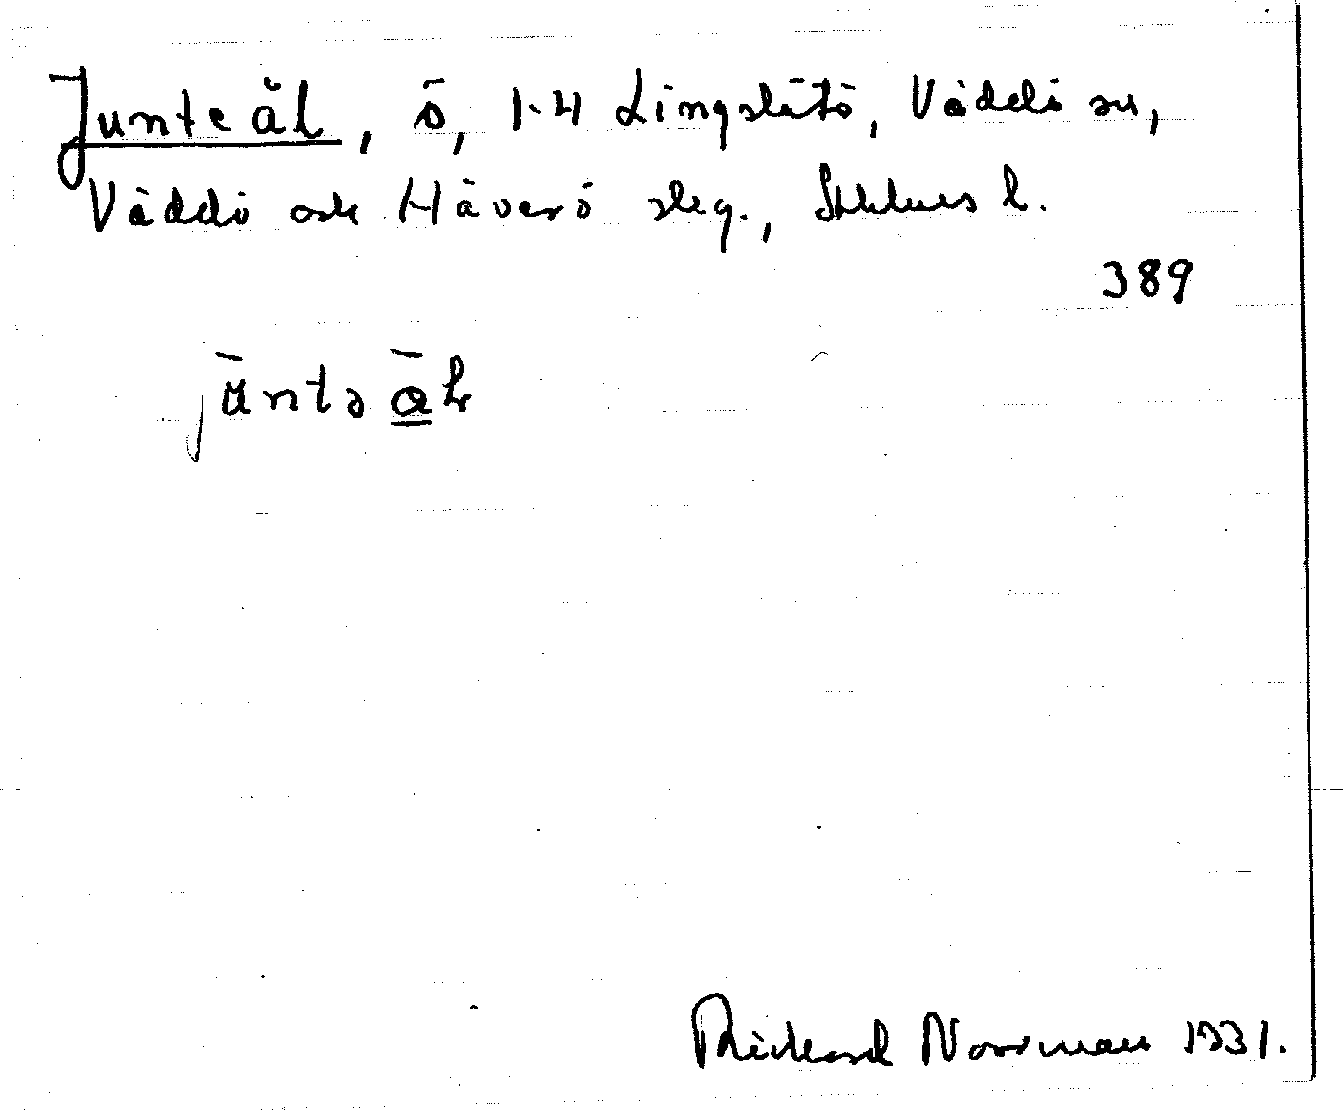 Junteäl, ö, 1-4 Lingslätö, Väddö sn,
Väddö och Häverö skg., Sthlms l.
389
Rickard Norrman 1931.